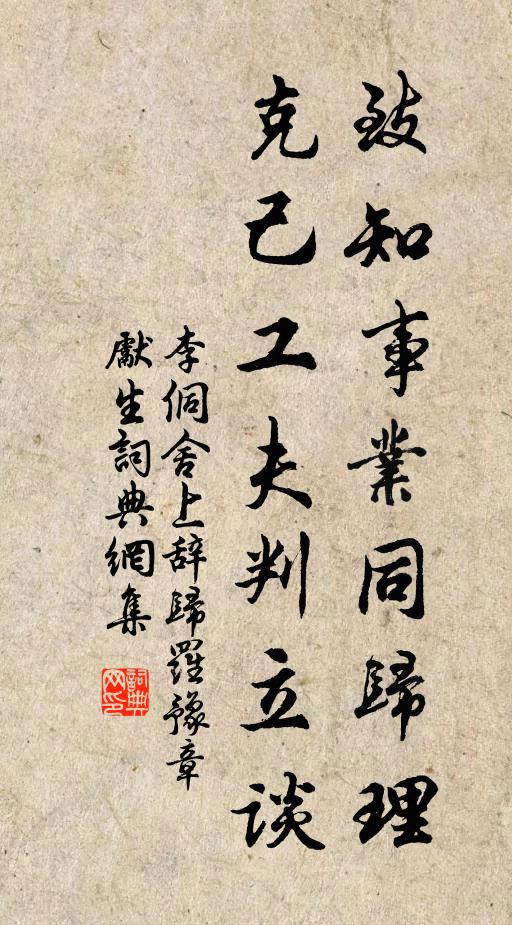 致知事業同歸理
克己工夫判立谈
李侗舍上辞歸羅豫章
獻生詞典網集
詞典网印